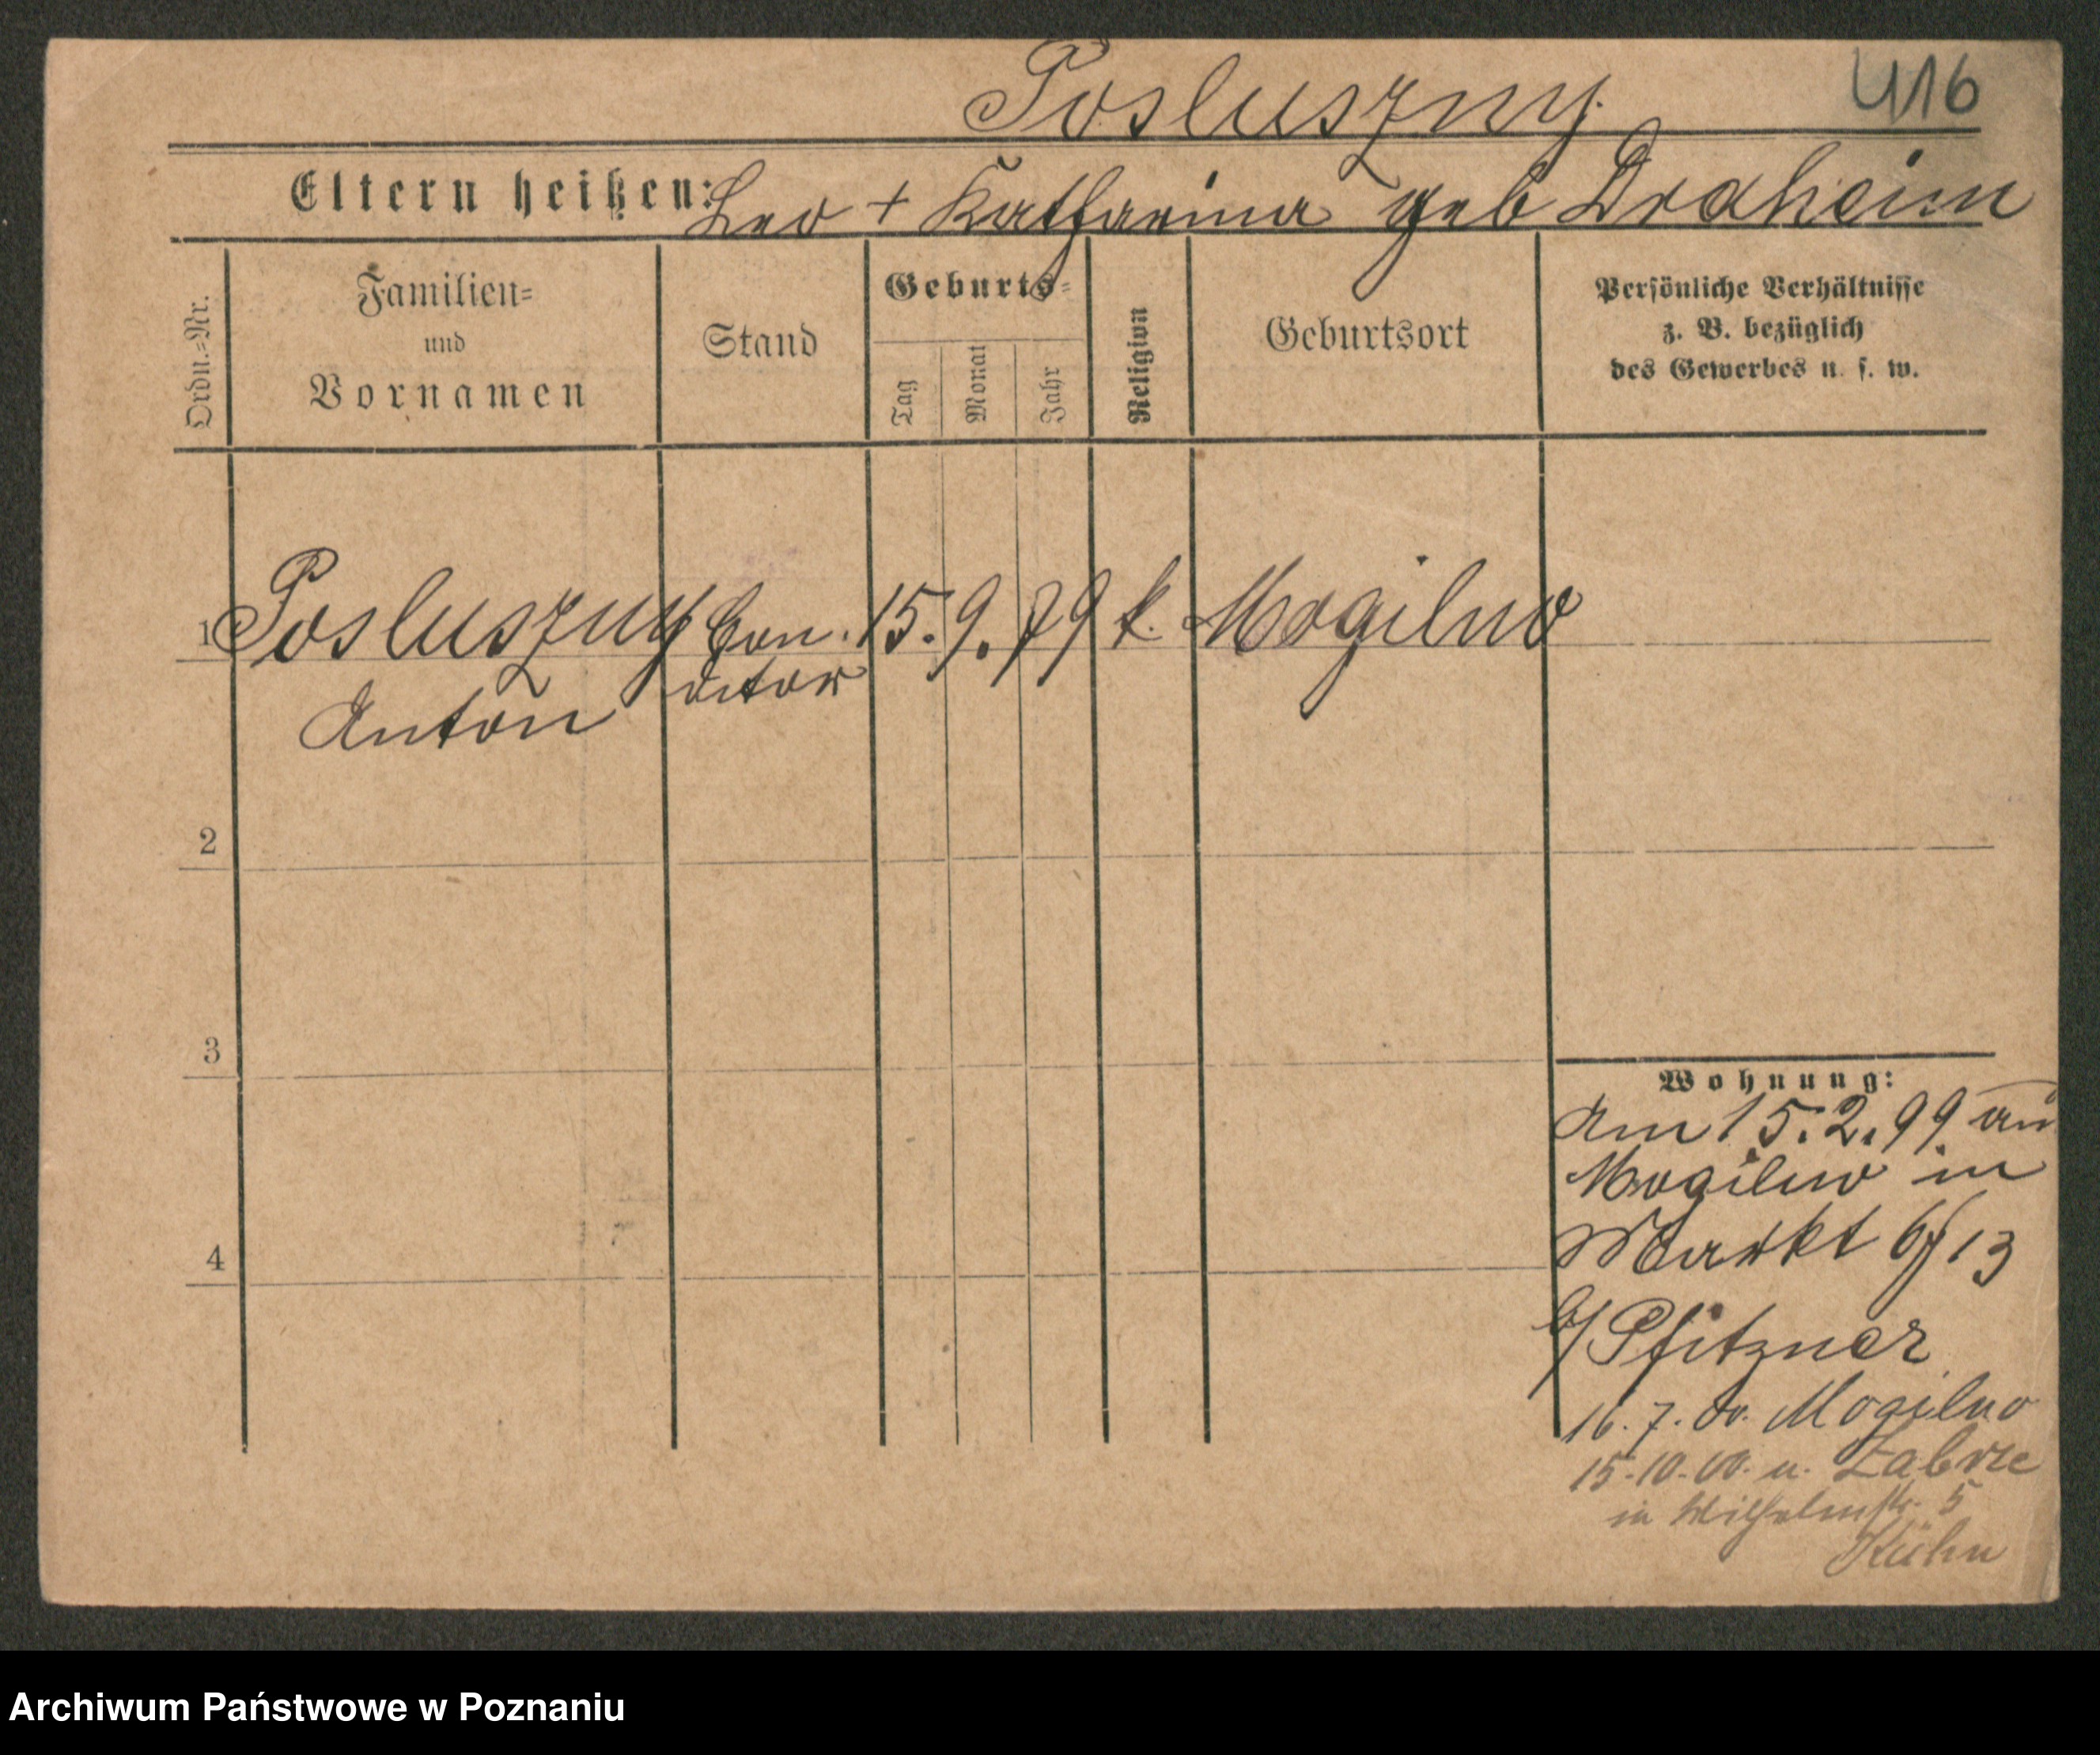 Posluszny.
416
Eltern heißen: Leo + Katharina geb Draheim
Ordn.=Nr.
Familien=
und
Vornamen
Stand
Geburts=
Tag
Monat
Jahr
Religion
Geburtsort
Persönliche Verhältnisse
z. B. bezüglich
des Gewerbes u. s. w.
1 Posluszny Con. 15. 9. 79 k. Mogilno
Anton ditor
2
3
4
Wohnung:
Am 15.2.99 au
Mogilno in
Markt 6/13
b/ Pfitzner
16. 7. 00. Mogilno
15-10-00. u. Zabrze
in Wilhelmstr. 5
Kühn
Archiwum Państwowe w Poznaniu